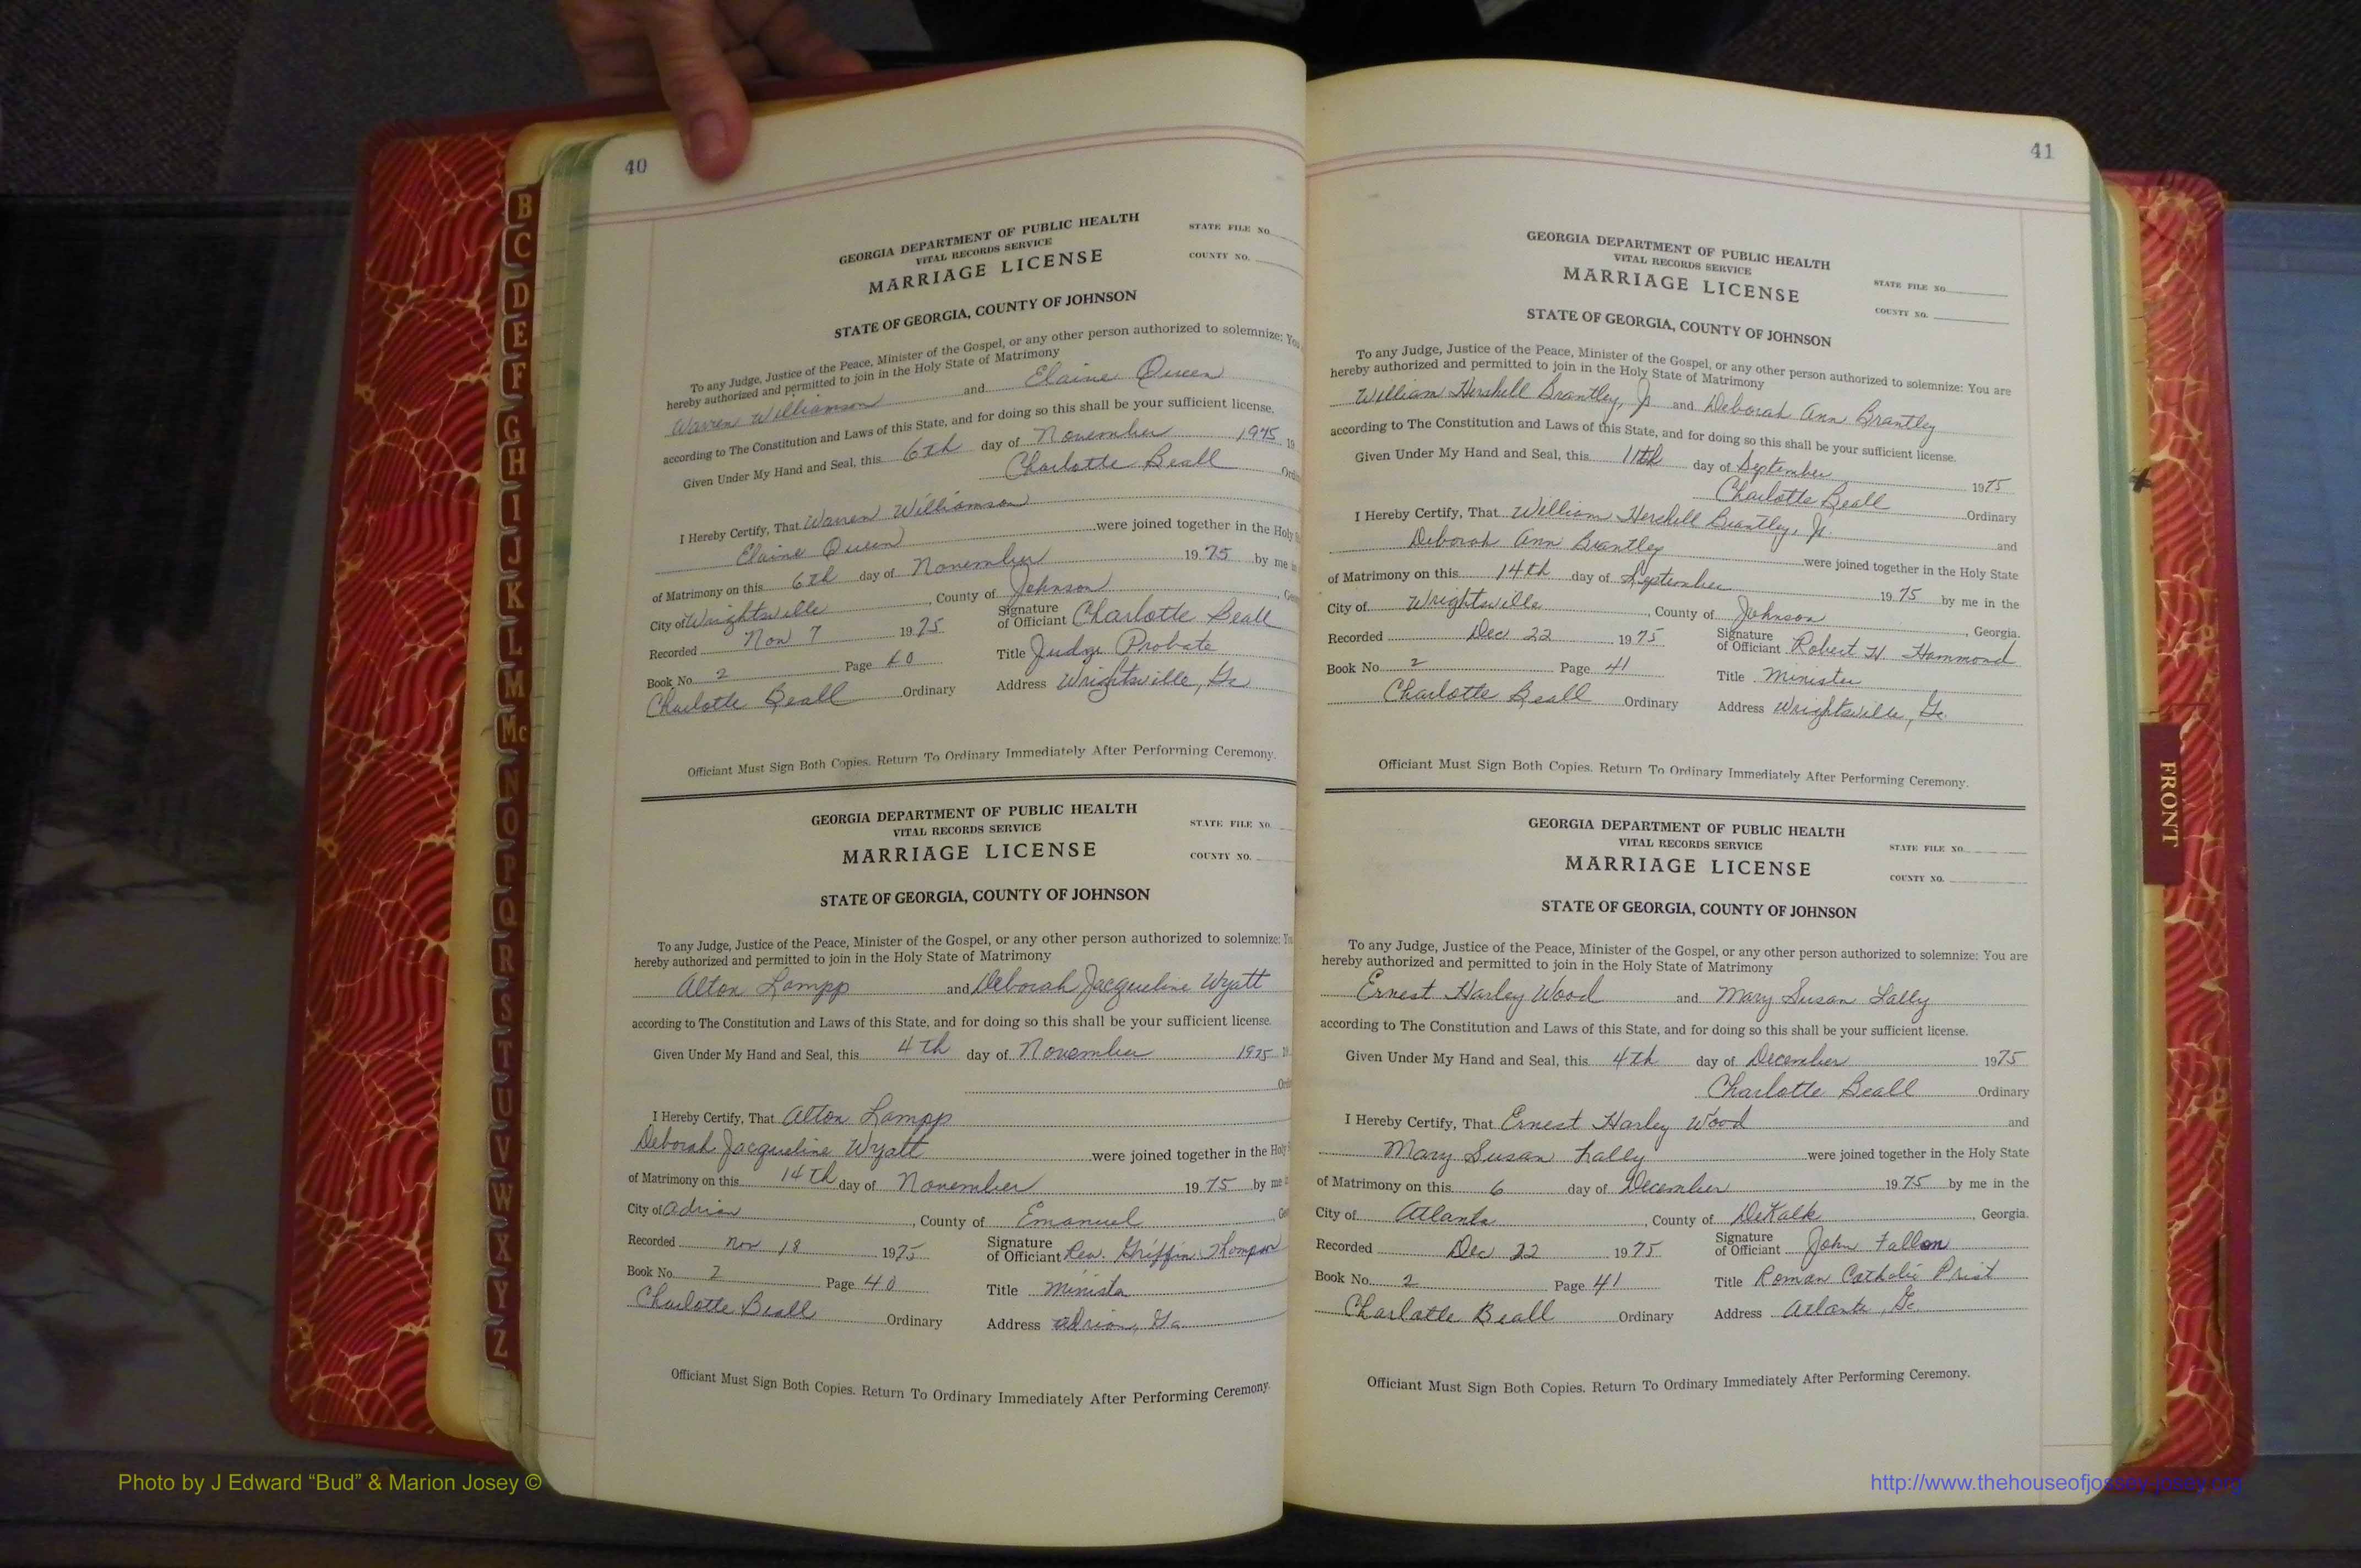 40
GEORGIA DEPARTMENT OF PUBLIC HEALTH
VITAL RECORDS SERVICE
MARRIAGE LICENSE
STATE FILE NO.
COUNTY NO.
STATE OF GEORGIA, COUNTY OF JOHNSON
To any Judge, Justice of the Peace, Minister of the Gospel, or any other person authorized to solemnize: You
hereby authorized and permitted to join in the Holy State of Matrimony
Warren Williamson and Elaine Queen
according to The Constitution and Laws of this State, and for doing so this shall be your sufficient license.
Given Under My Hand and Seal, this 6th day of November 1975 19
Charlotte Beall Ord
I Hereby Certify, That Warren Williamson
Elaine Queen were joined together in the Holy
of Matrimony on this 6th day of November 1975 by me in
City of Wrightsville, County of Johnson, Geo
Recorded Nov 7 1975 Signature of Officiant Charlotte Beall
Book No. 2 Page 40 Title Judge Probate
Charlotte Beall Ordinary Address Wrightsville, Ga
Officiant Must Sign Both Copies. Return To Ordinary Immediately After Performing Ceremony.
GEORGIA DEPARTMENT OF PUBLIC HEALTH
VITAL RECORDS SERVICE
MARRIAGE LICENSE
STATE FILE NO.
COUNTY NO.
STATE OF GEORGIA, COUNTY OF JOHNSON
To any Judge, Justice of the Peace, Minister of the Gospel, or any other person authorized to solemnize: Yo
hereby authorized and permitted to join in the Holy State of Matrimony
Alton Lampp and Deborah Jacqueline Wyatt
according to The Constitution and Laws of this State, and for doing so this shall be your sufficient license.
Given Under My Hand and Seal, this 4th day of November 1975 19
Ordi
I Hereby Certify, That Alton Lampp
Deborah Jacqueline Wyatt were joined together in the Holy
of Matrimony on this 14th day of November 1975 by me
City of Adrian, County of Emanuel, Geo
Recorded Nov 18 1975 Signature of Officiant Rev. Griffin Thompson
Book No. 2 Page 40 Title Minister
Charlotte Beall Ordinary Address Adrian, Ga
Officiant Must Sign Both Copies. Return To Ordinary Immediately After Performing Ceremony.
41
GEORGIA DEPARTMENT OF PUBLIC HEALTH
VITAL RECORDS SERVICE
MARRIAGE LICENSE
STATE FILE NO.
COUNTY NO.
STATE OF GEORGIA, COUNTY OF JOHNSON
To any Judge, Justice of the Peace, Minister of the Gospel, or any other person authorized to solemnize: You are
hereby authorized and permitted to join in the Holy State of Matrimony
William Hershell Brantley, Jr and Deborah Ann Brantley
according to The Constitution and Laws of this State, and for doing so this shall be your sufficient license.
Given Under My Hand and Seal, this 11th day of September 1975
Charlotte Beall Ordinary
I Hereby Certify, That William Hershell Brantley, Jr. and
Deborah Ann Brantley were joined together in the Holy State
of Matrimony on this 14th day of September 1975 by me in the
City of Wrightsville, County of Johnson, Georgia.
Recorded Dec 22 1975 Signature of Officiant Robert H. Hammond
Book No. 2 Page 41 Title Minister
Charlotte Beall Ordinary Address Wrightsville, Ga.
Officiant Must Sign Both Copies. Return To Ordinary Immediately After Performing Ceremony.
GEORGIA DEPARTMENT OF PUBLIC HEALTH
VITAL RECORDS SERVICE
MARRIAGE LICENSE
STATE FILE NO.
COUNTY NO.
STATE OF GEORGIA, COUNTY OF JOHNSON
To any Judge, Justice of the Peace, Minister of the Gospel, or any other person authorized to solemnize: You are
hereby authorized and permitted to join in the Holy State of Matrimony
Ernest Harley Wood and Mary Susan Lally
according to The Constitution and Laws of this State, and for doing so this shall be your sufficient license.
Given Under My Hand and Seal, this 4th day of December 1975
Charlotte Beall Ordinary
I Hereby Certify, That Ernest Harley Wood and
Mary Susan Lally were joined together in the Holy State
of Matrimony on this 6 day of December 1975 by me in the
City of Atlanta, County of DeKalb, Georgia.
Recorded Dec 22 1975 Signature of Officiant John Fallon
Book No. 2 Page 41 Title Roman Catholic Prist
Charlotte Beall Ordinary Address Atlanta, Ga.
Officiant Must Sign Both Copies. Return To Ordinary Immediately After Performing Ceremony.
B
C
D
E
F
G
H
I
J
K
L
M
Mc
N
O
P
Q
R
S
T
U
V
W
X
Y
Z
FRONT
Photo by J Edward “Bud” & Marion Josey ©
http://www.thehouseofjossey-josey.org